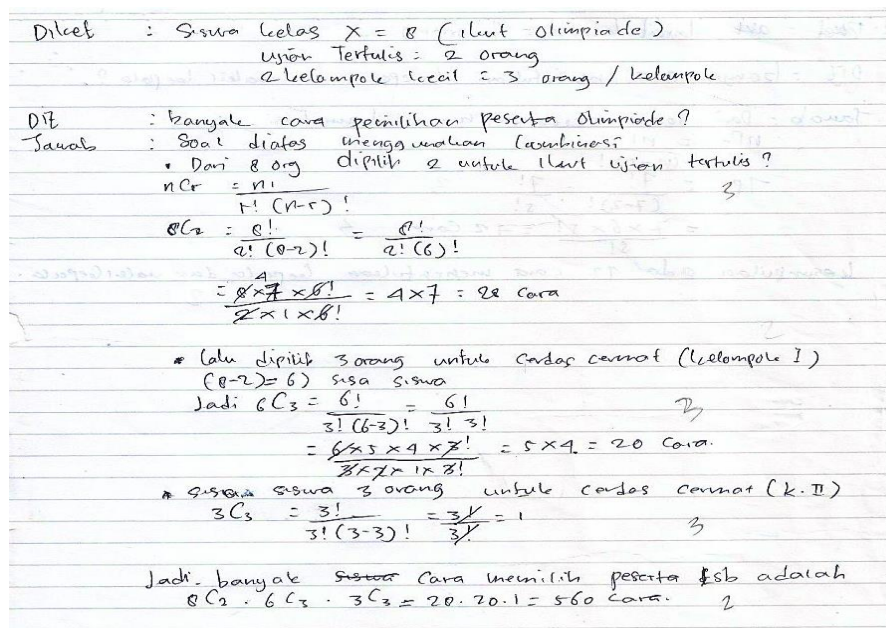 Diket : Siswa kelas X = 8 (ikut Olimpiade)
Ujian Tertulis = 2 orang
2 kelompok kecil = 3 orang / kelompok
Dit : banyak cara pemilihan peserta Olimpiade ?
Jawab : Soal diatas menggunakan Combinasi
• Dari 8 org dipilih 2 untuk ikut ujian tertulis ?
nCr = n! / r! (n-r)! 3
8C2 = 8! / 2! (8-2)! = 8! / 2! (6)!
= 8 4 x 7 x 6! / 2 x 1 x 6! = 4 x 7 = 28 cara
• Lalu dipilih 3 orang untuk cerdas cermat (kelompok I)
(8-2) = 6) sisa siswa
Jadi 6C3 = 6! / 3! (6-3)! = 6! / 3! 3! 3
= 6 x 5 x 4 x 3! / 3 x 2 x 1 x 3! = 5 x 4 = 20 Cara.
• sisa siswa 3 orang untuk cerdas cermat (k. II)
3C3 = 3! / 3! (3-3)! = 3! / 3! = 1 3
Jadi banyak siswa cara memilih peserta tsb adalah
8C2 . 6C3 . 3C3 = 28. 20. 1 = 560 cara. 2